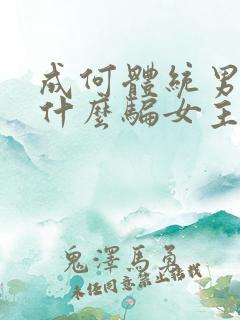 成何體統男
什麼騙女主
鬼澤馬勇
未经同意禁止转载